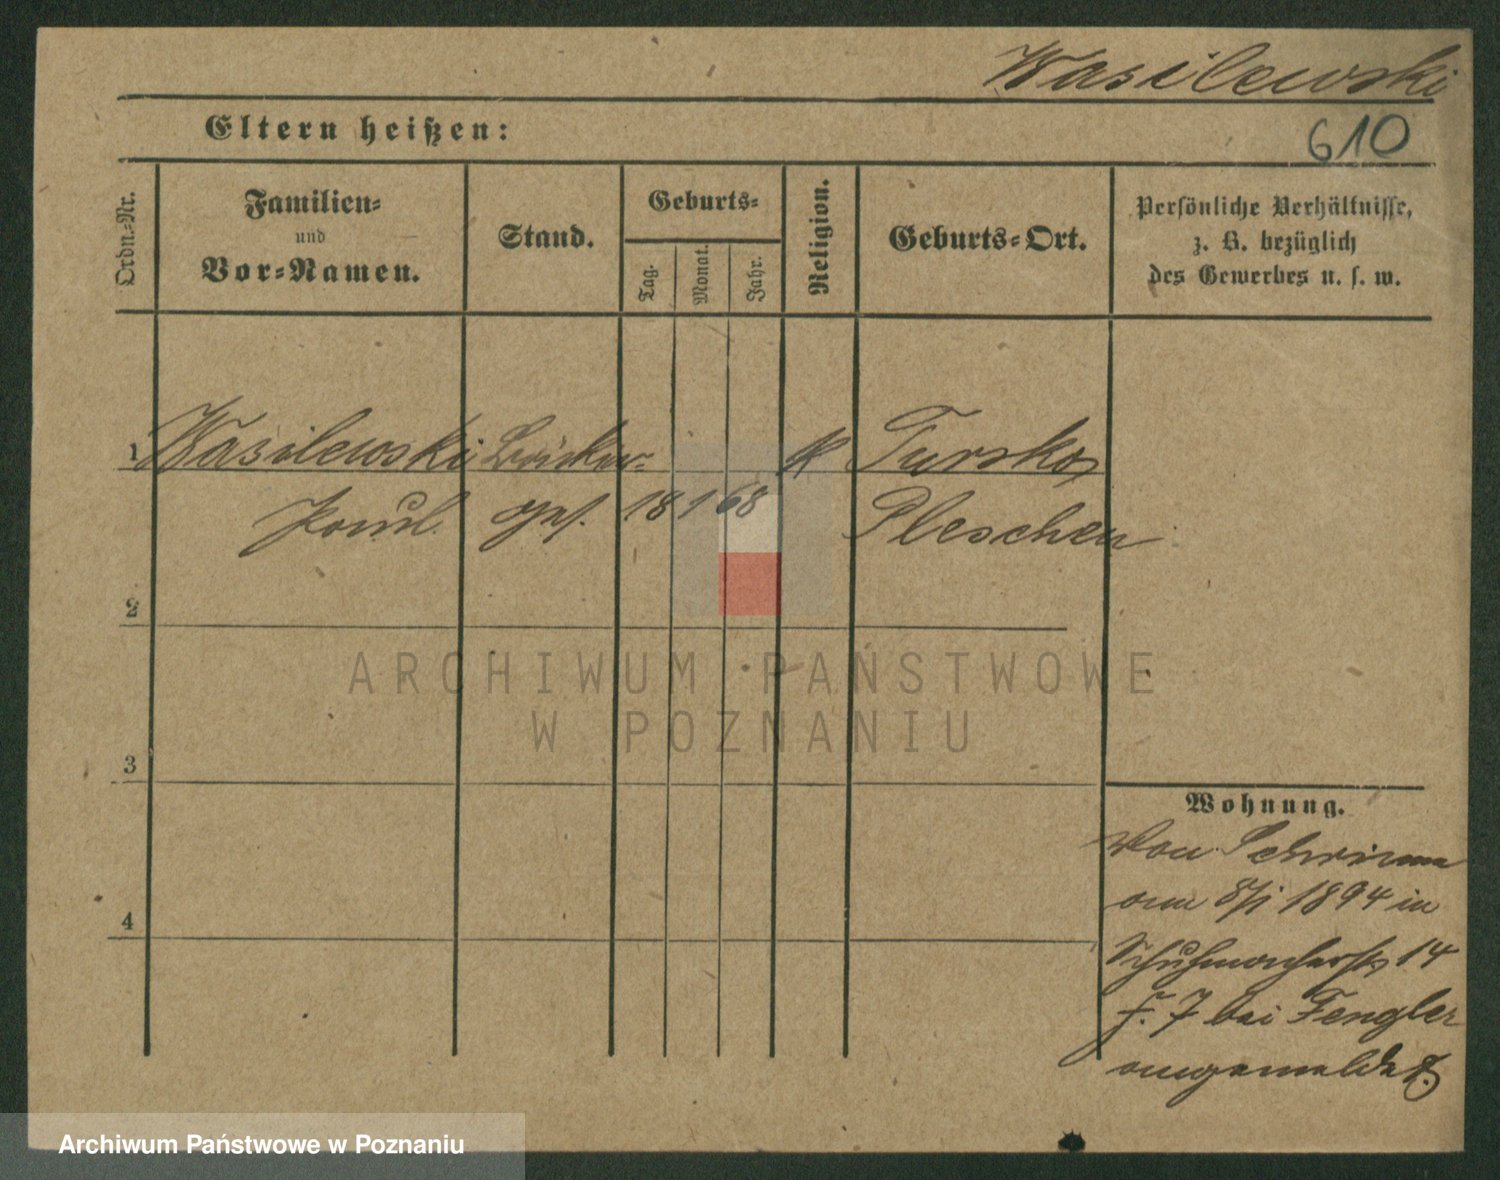 Wasilewski
Eltern heißen:
610
Ordn.-Nr.
Familien-
und
Vor-Namen.
Stand.
Geburts-
Tag.
Monat.
Jahr.
Religion.
Geburts-Ort.
Persönliche Verhältnisse,
z. B. bezüglich
des Gewerbes u. s. w.
1 Wasilewski K Tursko
Paul 18 1 68 Pleschen
2
3
4
ARCHIWUM PAŃSTWOWE
W POZNANIU
Wohnung.
Von Schrimm
am 8/1 1894 in
Schuhmacherstr 14
f. 7 bei Fengler
angemeldet
Archiwum Państwowe w Poznaniu